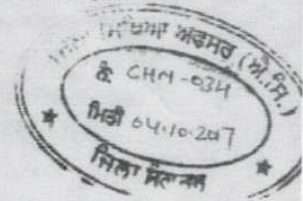 ਸਿੱਖਿਆ ਅਫਸਰ (ਐ.ਸਿ.)
ਨੰ: CHM-034
ਮਿਤੀ 04.10.2017
ਜਿਲਾ